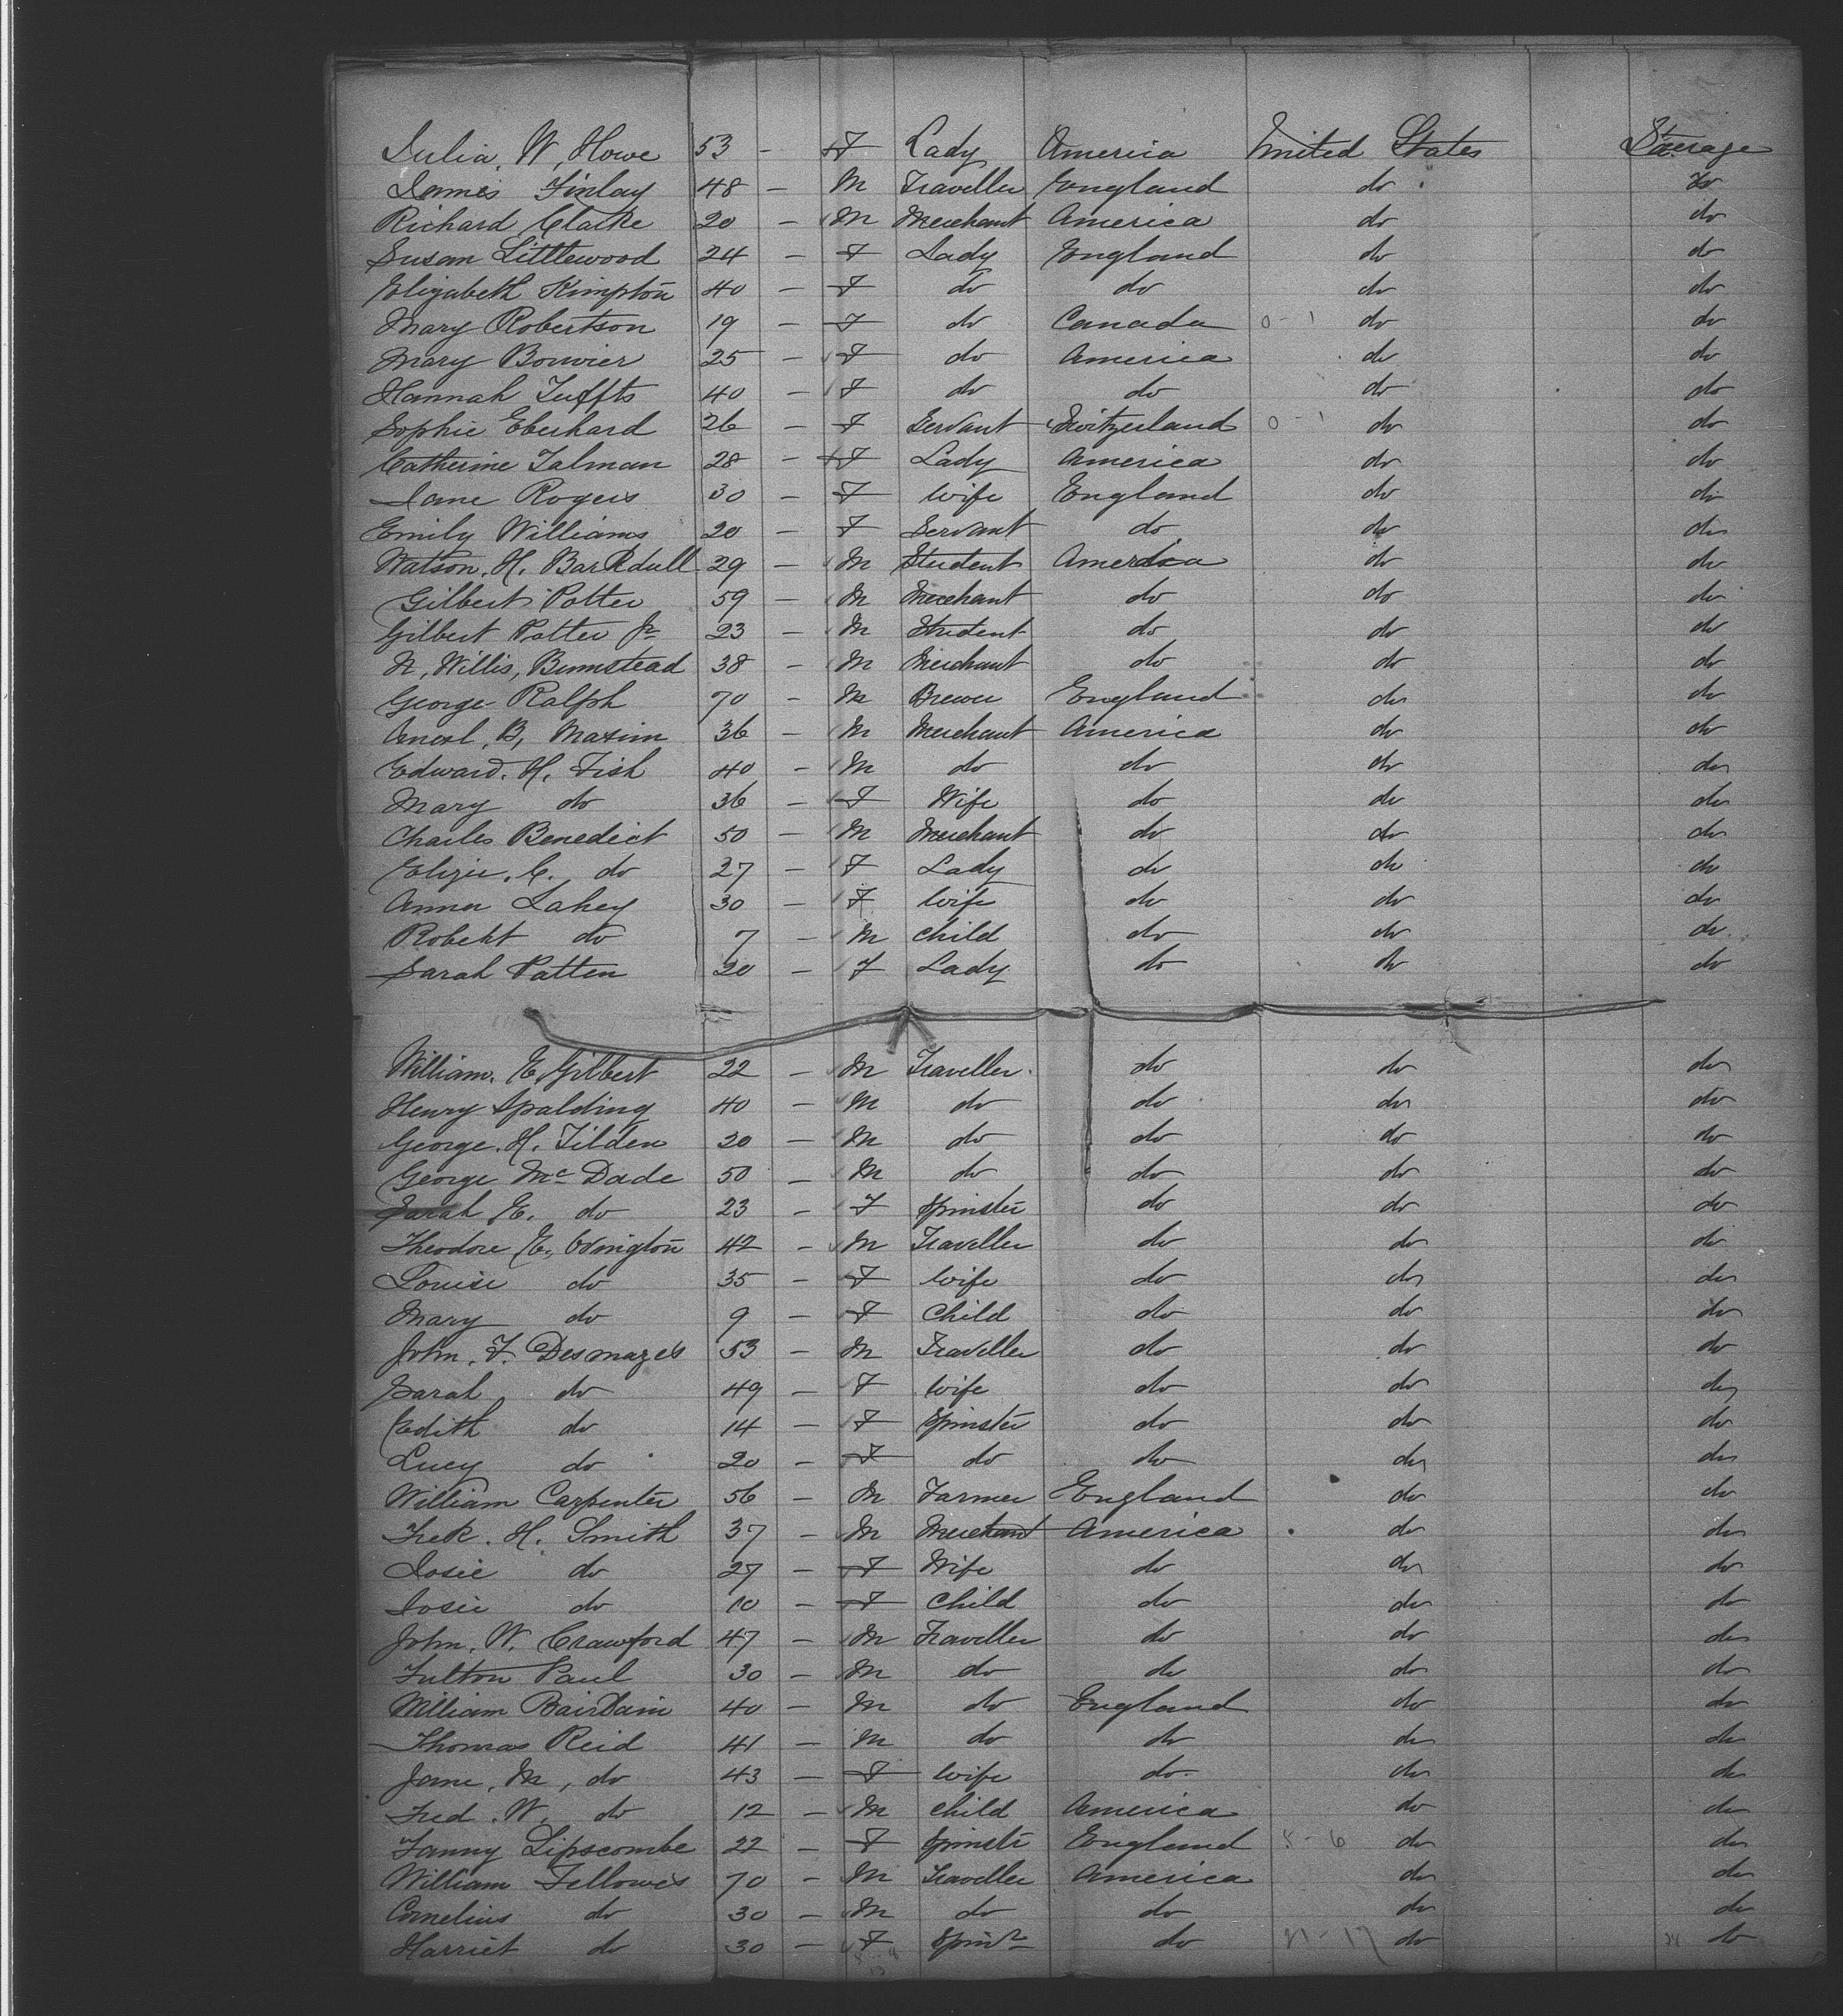 Julia W, Howe 53 - F Lady America United States Steerage
James Finlay 48 - M Traveller England do do
Richard Clarke 20 - M Merchant America do do
Susan Littlewood 24 - F Lady England do do
Elizabeth Kimpton 40 - F do do do do
Mary Robertson 19 - F do Canada 0 - 1 do do
Mary Bouvier 25 - F do America do do
Hannah Tuffts 40 - F do do do do
Sophie Eberhard 26 - F Servant Switzerland 0 - 1 do do
Catherine Talman 28 - F Lady America do do
Jane Rogers 30 - F Wife England do do
Emily Williams 20 - F Servant do do do
Watson. H. Barkdull 29 - M Student America do do
Gilbert Potter 59 - M Merchant do do do
Gilbert Potter Jr 23 - M Student do do do
N, Willis, Bumstead 38 - M Merchant do do do
George Ralph 70 - M Brewer England do do
B, Maxim 36 - M Merchant America do do
Edward. H. Fish 40 - M do do do do
Mary do 36 - F Wife do do do
Charles Benedict 50 - M Merchant do do do
Elizie. C. do 27 - F Lady do do do
Anna Lahey 30 - F Wife do do do
Robert do 7 - M Child do do do
Sarah Patten 20 - F Lady do do do
William. E. Gilbert 22 - M Traveller do do do
Henry Spalding 40 - M do do do do
George. H. Tilden 20 - M do do do do
George McDade 50 - M do do do do
Sarah E. do 23 - F Spinster do do do
Theodore E. Ovington 42 - M Traveller do do do
Louise do 35 - F Wife do do do
Mary do 9 - F Child do do do
John. F. Desmazes 53 - M Traveller do do do
Sarah do 49 - F Wife do do do
Edith do 14 - F Spinster do do do
Lucy do 20 - F do do do do
William Carpenter 56 - M Farmer England do do
Frek. H. Smith 37 - M Merchant America do do
Josie do 27 - F Wife do do do
Josie do 10 - F Child do do do
John. W. Crawford 47 - M Traveller do do do
Fulton Paul 30 - M do do do do
William 40 - M do England do do
Thomas Reid 41 - M do do do do
Jane. M, do 43 - F Wife do do do
Fred. W. do 12 - M Child America do do
Fanny Lipscombe 22 - F Spinstr England 5 - 6 do do
William Fellowes 70 - M Traveller America do do
Cornelius do 30 - M do do do do
Harriet do 30 - F Spinr do 21 - 17 do do